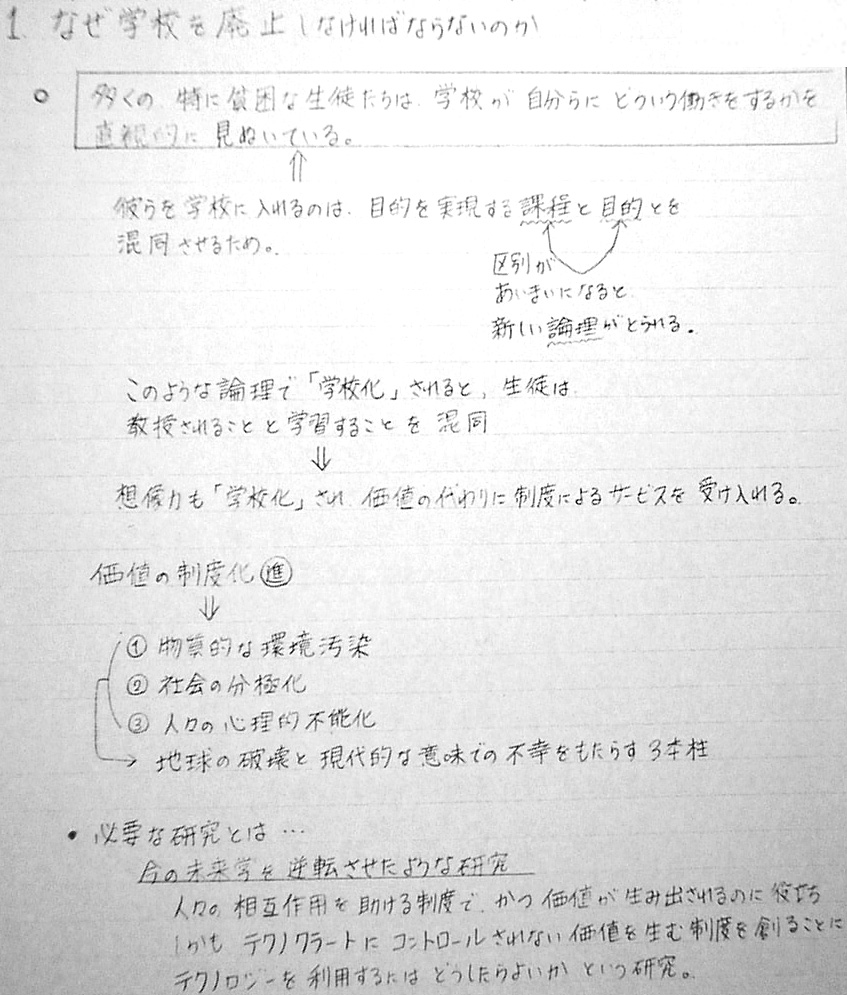 1. なぜ学校を廃止しなければならないのか
○ 多くの、特に貧困な生徒たちは、学校が自分らにどういう働きをするかを
直観的に見ぬいている。
⇑
彼らを学校に入れるのは、目的を実現する課程と目的とを
混同させるため。
区別が
あいまいになると、
新しい論理がとられる。
このような論理で「学校化」されると、生徒は、
教授されることと学習することを混同
⇓
想像力も「学校化」され、価値の代わりに制度によるサービスを受け入れる。
価値の制度化 進
⇓
① 物質的な環境汚染
② 社会の分極化
③ 人々の心理的不能化
→ 地球の破壊と現代的な意味での不幸をもたらす3本柱
• 必要な研究とは…
今の未来学を逆転させたような研究
人々の相互作用を助ける制度で、かつ価値が生み出されるのに役立ち
しかもテクノクラートにコントロールされない価値を生む制度を創ることに
テクノロジーを利用するにはどうしたらよいかという研究。